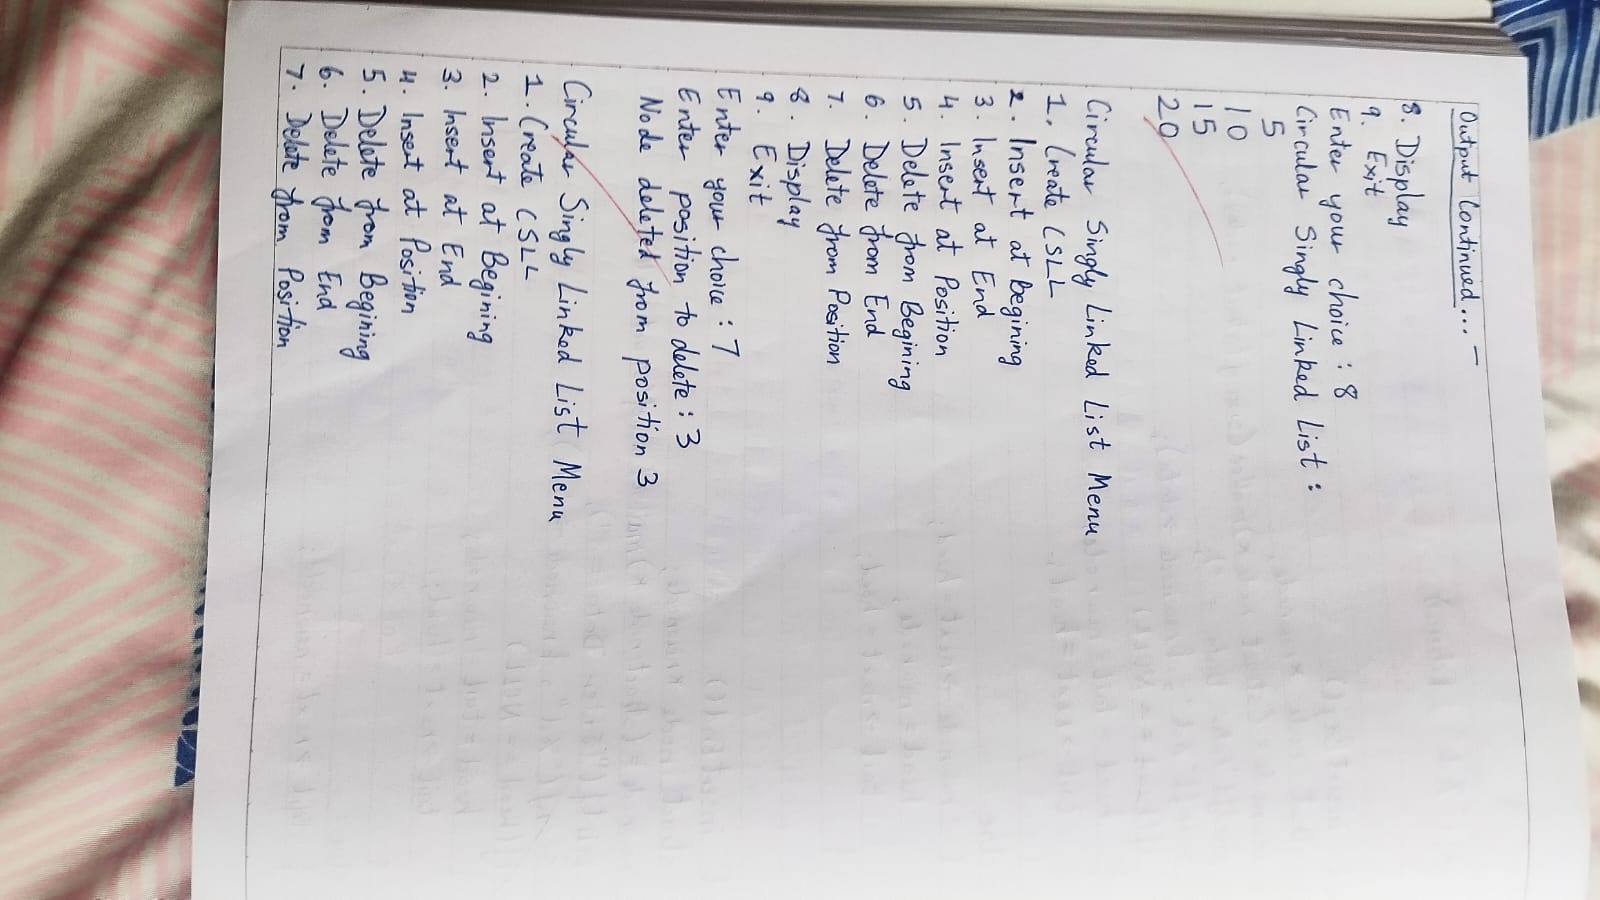 Output Continued... -
8. Display
9. Exit
Enter your choice : 8
Circular Singly Linked List :
5
10
15
20
Circular Singly Linked List Menu
1. Create CSLL
2. Insert at Begining
3. Insert at End
4. Insert at Position
5. Delete from Begining
6. Delete from End
7. Delete from Position
8. Display
9. Exit
Enter your choice : 7
Enter position to delete : 3
Node deleted from position 3
Circular Singly Linked List Menu
1. Create CSLL
2. Insert at Begining
3. Insert at End
4. Insert at Position
5. Delete from Begining
6. Delete from End
7. Delete from Position